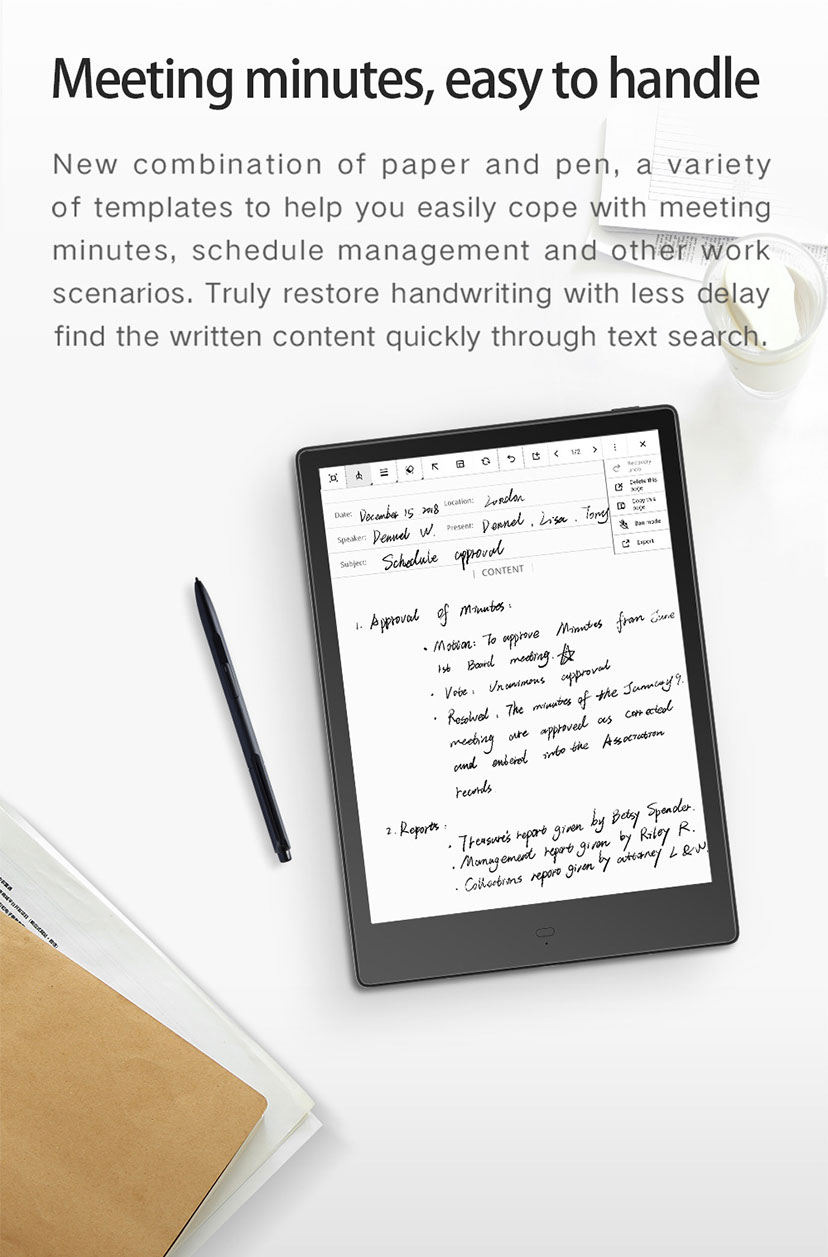 Meeting minutes, easy to handle
New combination of paper and pen, a variety
of templates to help you easily cope with meeting
minutes, schedule management and other work
scenarios. Truly restore handwriting with less delay
find the written content quickly through text search.
1/2
Recovery
undo
Delete this
page
Copy this
page
Ban mode
Export
Date: December 15 2018 Location: London
Speaker: Dennel W. Present: Dennel, Lisa, Tony
Subject: Schedule approval
CONTENT
1. Approval of Minutes:
· Motion: To approve Minutes from June
1st Board meeting.
· Vote: Unanimous approval
· Resolved, The minutes of the January 9.
meeting are approved as corrected
and entered into the Association
records
2. Reports:
· Treasure's report given by Betsy Spender.
· Management report given by Riley R.
· Collections report given by attorney L & W.